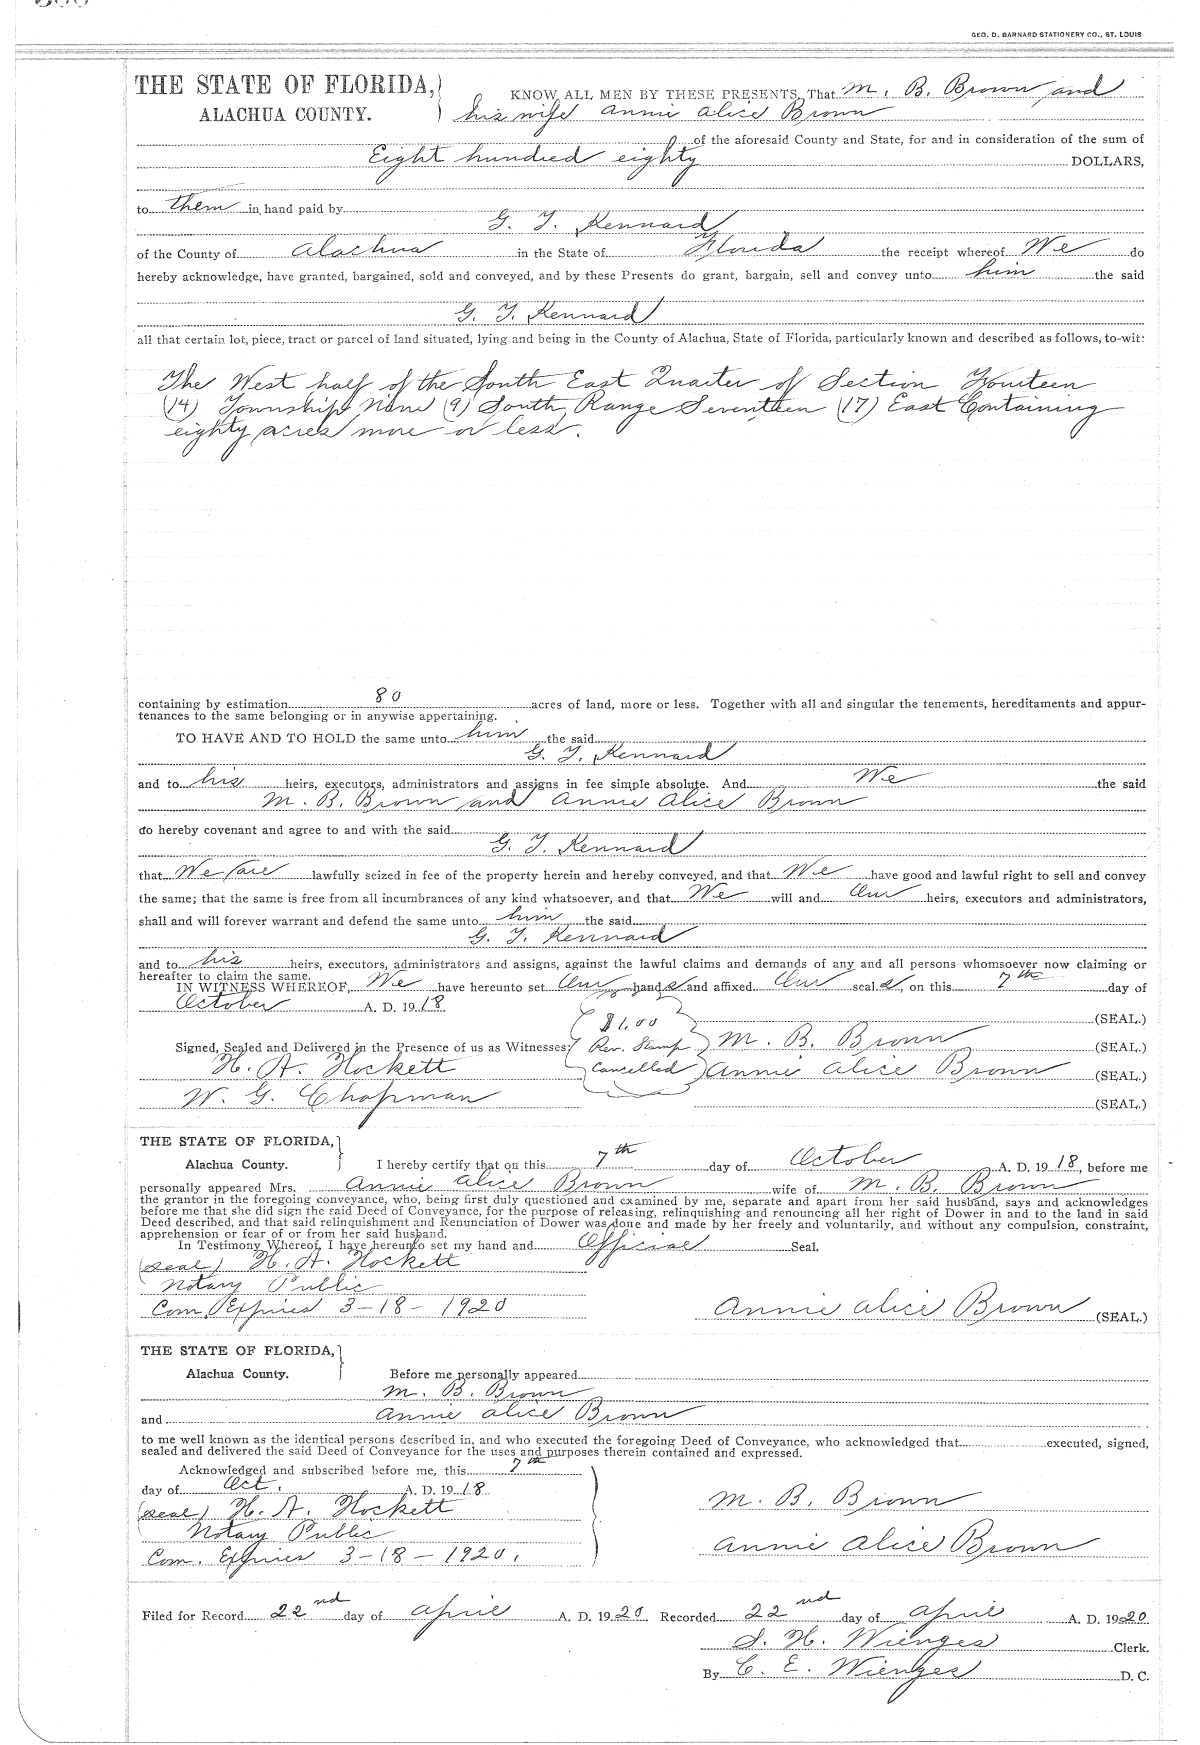 GEO. D. BARNARD STATIONERY CO., ST. LOUIS
THE STATE OF FLORIDA,
ALACHUA COUNTY.
KNOW ALL MEN BY THESE PRESENTS, That M. B. Brown and
his wife Annie Alice Brown
of the aforesaid County and State, for and in consideration of the sum of
Eight hundred eighty DOLLARS,
to them in hand paid by
G. T. Kennard
of the County of Alachua in the State of Florida the receipt whereof We do
hereby acknowledge, have granted, bargained, sold and conveyed, and by these Presents do grant, bargain, sell and convey unto him the said
G. T. Kennard
all that certain lot, piece, tract or parcel of land situated, lying and being in the County of Alachua, State of Florida, particularly known and described as follows, to-wit:
The West half of the South East Quarter of Section Fourteen
(14) Township Nine (9) South, Range Seventeen (17) East Containing
eighty acres more or less.
containing by estimation 80 acres of land, more or less. Together with all and singular the tenements, hereditaments and appur-
tenances to the same belonging or in anywise appertaining.
TO HAVE AND TO HOLD the same unto him the said
G. T. Kennard
and to his heirs, executors, administrators and assigns in fee simple absolute. And We the said
M. B. Brown and Annie Alice Brown
do hereby covenant and agree to and with the said
G. T. Kennard
that We are lawfully seized in fee of the property herein and hereby conveyed, and that We have good and lawful right to sell and convey
the same; that the same is free from all incumbrances of any kind whatsoever, and that We will and Our heirs, executors and administrators,
shall and will forever warrant and defend the same unto him the said
G. T. Kennard
and to his heirs, executors, administrators and assigns, against the lawful claims and demands of any and all persons whomsoever now claiming or
hereafter to claim the same.
IN WITNESS WHEREOF, We have hereunto set Our hands and affixed Our seals, on this 7th day of
October A. D. 1918
(SEAL.)
$1.00
Signed, Sealed and Delivered in the Presence of us as Witnesses: Rev. Stamp M. B. Brown (SEAL.)
H. A. Hockett Cancelled Annie Alice Brown (SEAL.)
W. G. Chapman (SEAL.)
THE STATE OF FLORIDA,
Alachua County. I hereby certify that on this 7th day of October A. D. 1918, before me
personally appeared Mrs. Annie Alice Brown wife of M. B. Brown
the grantor in the foregoing conveyance, who, being first duly questioned and examined by me, separate and apart from her said husband, says and acknowledges
before me that she did sign the said Deed of Conveyance, for the purpose of releasing, relinquishing and renouncing all her right of Dower in and to the land in said
Deed described, and that said relinquishment and Renunciation of Dower was done and made by her freely and voluntarily, and without any compulsion, constraint,
apprehension or fear of or from her said husband.
In Testimony Whereof, I have hereunto set my hand and Official Seal.
(seal) H. A. Hockett
Notary Public
Com. Expires 3-18-1920 Annie Alice Brown (SEAL.)
THE STATE OF FLORIDA,
Alachua County. Before me personally appeared
M. B. Brown
and Annie Alice Brown
to me well known as the identical persons described in, and who executed the foregoing Deed of Conveyance, who acknowledged that executed, signed,
sealed and delivered the said Deed of Conveyance for the uses and purposes therein contained and expressed.
Acknowledged and subscribed before me, this 7th
day of Oct. A. D. 1918
(seal) H. A. Hockett M. B. Brown
Notary Public
Com. Expires 3-18-1920. Annie Alice Brown
Filed for Record 22nd day of April A. D. 1920 Recorded 22nd day of April A. D. 1920
S. H. Wienges Clerk.
By C. E. Wienges D. C.